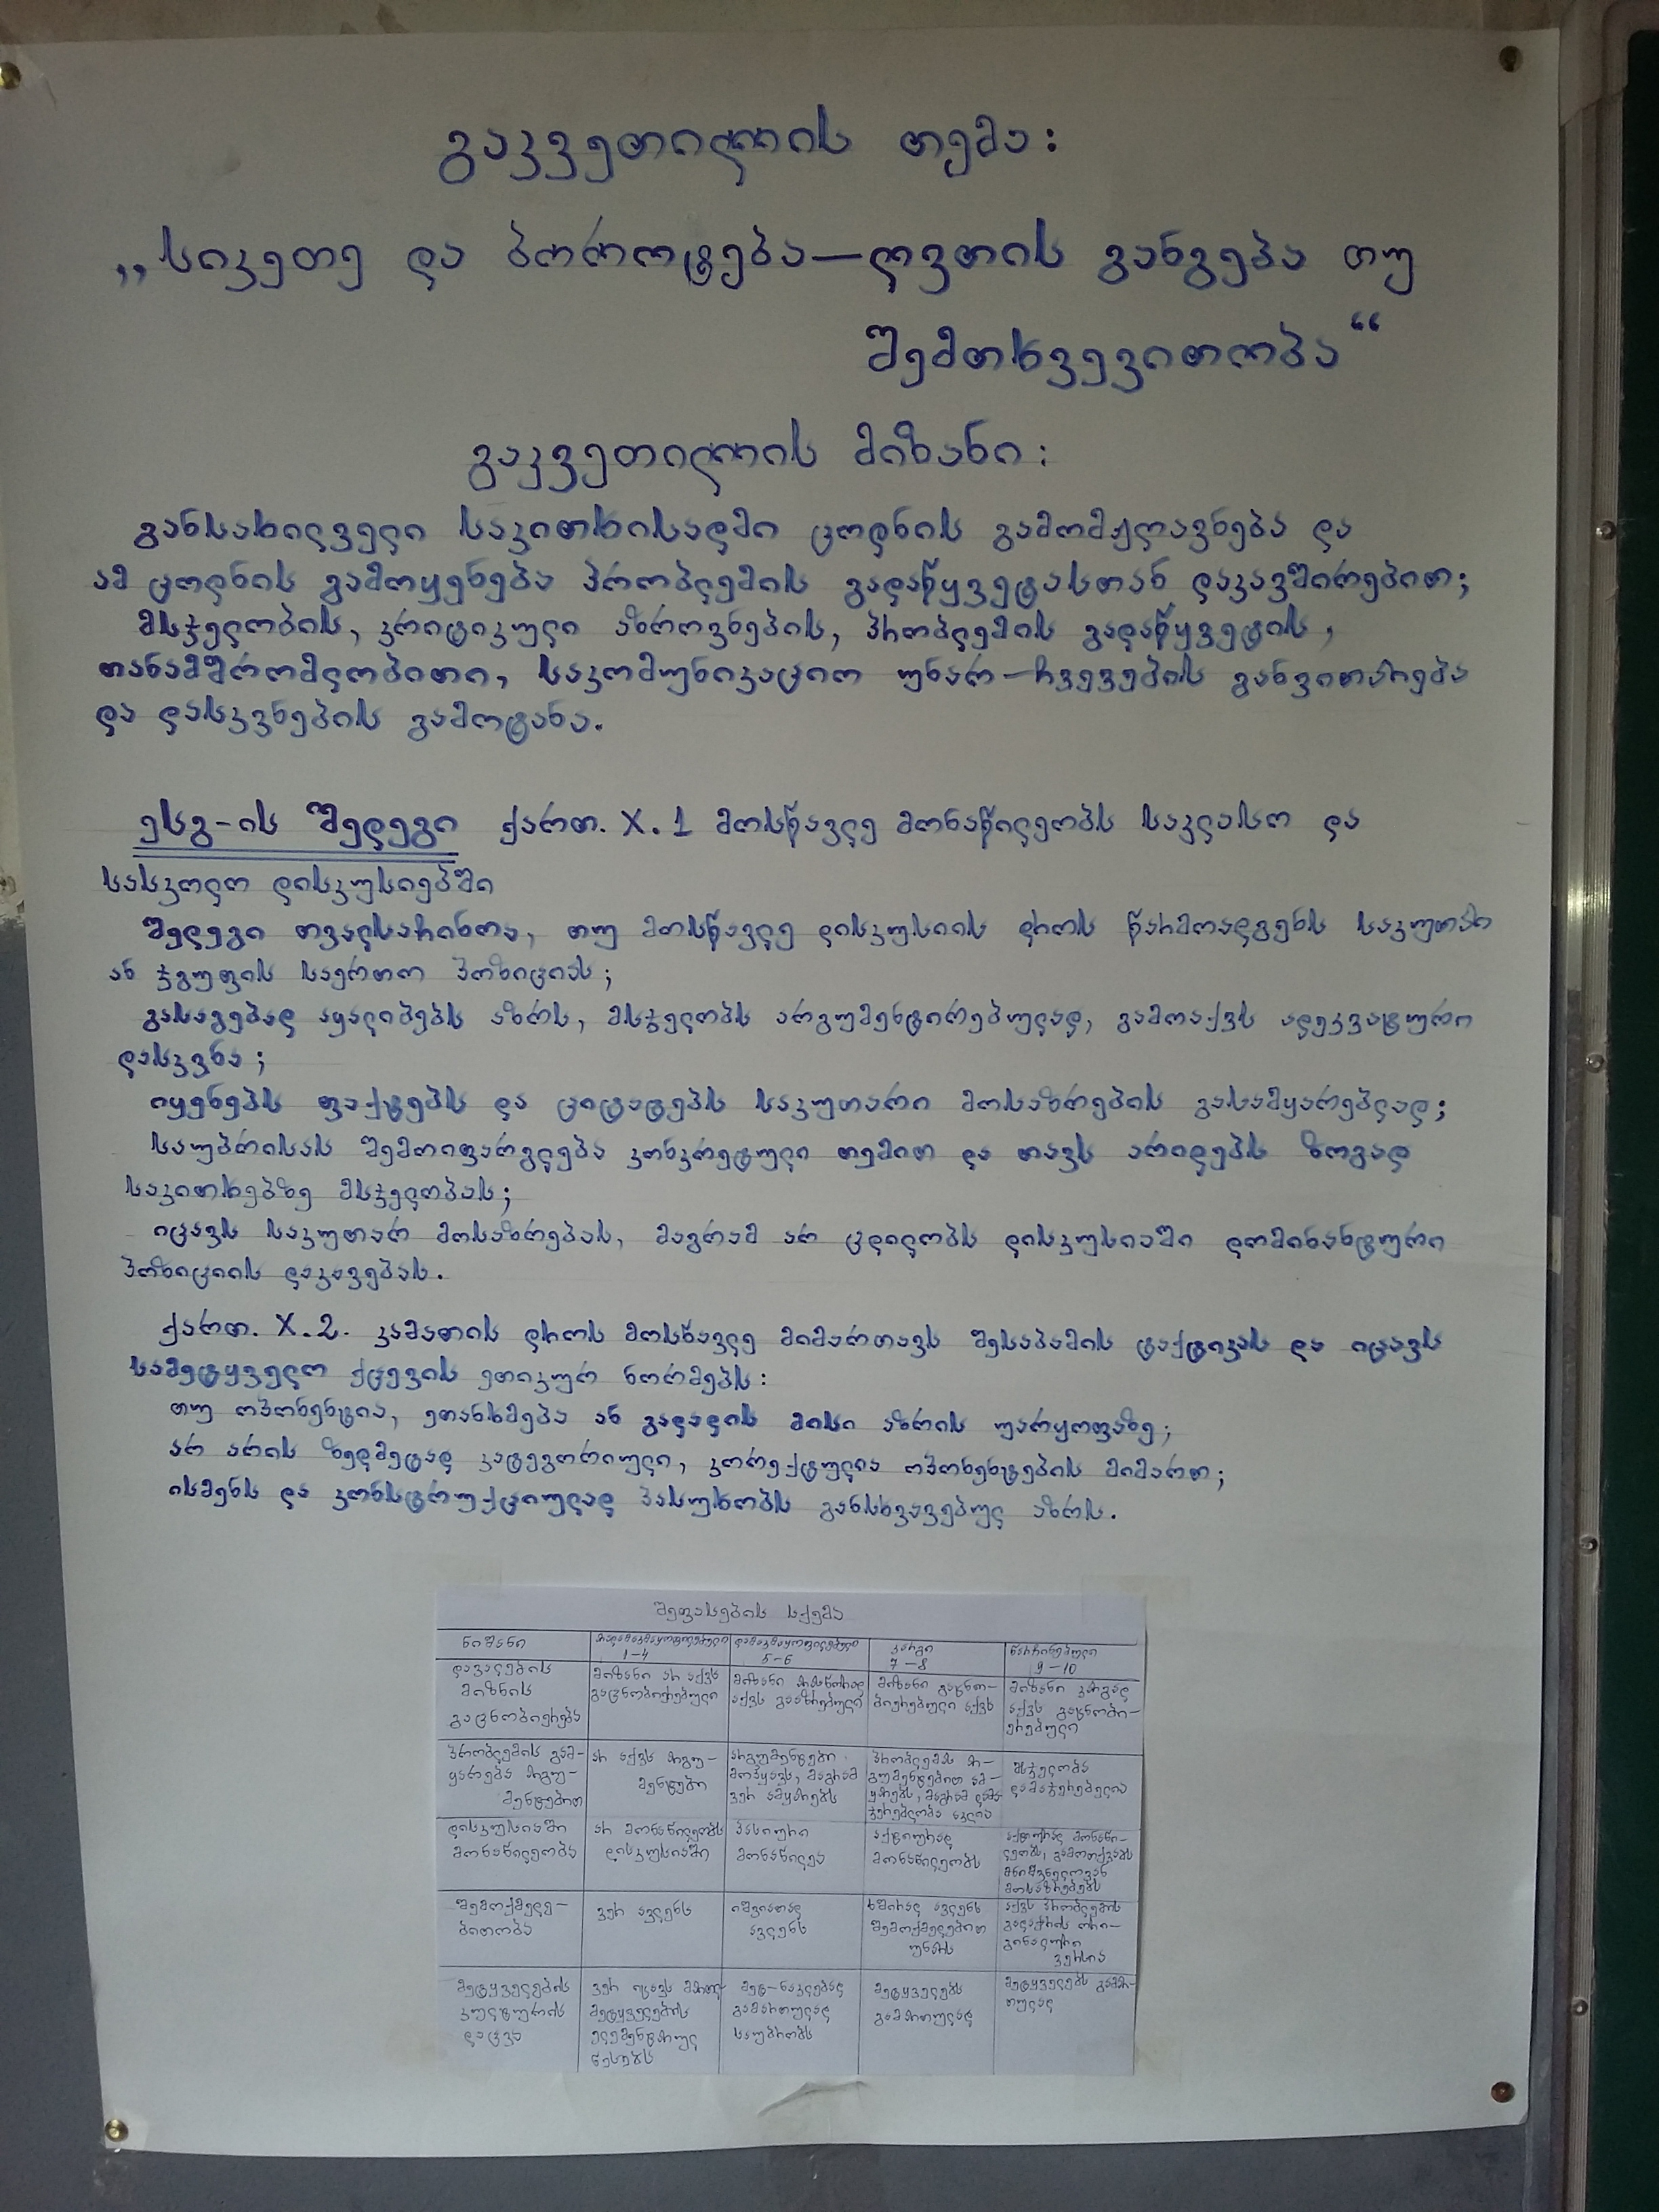 გაკვეთილის თემა:
„სიკეთე და ბოროტება—ღვთის განგება თუ
შემთხვევითობა“
გაკვეთილის მიზანი:
განსახილველი საკითხისადმი ცოდნის გამომჟღავნება და
ამ ცოდნის გამოყენება პრობლემის გადაწყვეტასთან დაკავშირებით;
მსჯელობის, კრიტიკული აზროვნების, პრობლემის გადაწყვეტის,
თანამშრომლობითი, საკომუნიკაციო უნარ-ჩვევების განვითარება
და დასკვნების გამოტანა.
ესგ-ის შედეგი ქართ. X.1 მოსწავლე მონაწილეობს საკლასო და
სასკოლო დისკუსიებში
შედეგი თვალსაჩინოა, თუ მოსწავლე დისკუსიის დროს წარმოადგენს საკუთარ
ან ჯგუფის საერთო პოზიციას;
გასაგებად აყალიბებს აზრს, მსჯელობს არგუმენტირებულად, გამოაქვს ადეკვატური
დასკვნა;
იყენებს ფაქტებს და ციტატებს საკუთარი მოსაზრების გასამყარებლად;
საუბრისას შემოიფარგლება კონკრეტული თემით და თავს არიდებს ზოგად
საკითხებზე მსჯელობას;
იცავს საკუთარ მოსაზრებას, მაგრამ არ ცდილობს დისკუსიაში დომინანტური
პოზიციის დაკავებას.
ქართ. X.2. კამათის დროს მოსწავლე მიმართავს შესაბამის ტაქტიკას და იცავს
სამეტყველო ქცევის ეთიკურ ნორმებს:
თუ ოპონენტია, ეთანხმება ან გადადის მისი აზრის უარყოფაზე;
არ არის ზედმეტად კატეგორიული, კორექტულია ოპონენტების მიმართ;
ისმენს და კონსტრუქციულად პასუხობს განსხვავებულ აზრს.
შეფასების სქემა
ნიშანი არადამაკმაყოფილებელი დამაკმაყოფილებელი კარგი წარჩინებული
1-4 5-6 7-8 9-10
დავალების მიზანი არ აქვს მიზანი მიზანი გაცნო- მიზანი კარგად
მიზნის გაცნობიერებული აქვს გააზრებული ბიერებული აქვს აქვს გაცნობი-
გაცნობიერება ერებული
პრობლემის გამ- არ აქვს არგუ- არგუმენტები პრობლემას არ- მსჯელობა
ყარება არგუ- მენტები მოჰყავს, მაგრამ გუმენტებით ამ- დამაჯერებელია
მენტებით ვერ ამყარებს ყარებს, მაგრამ დამა-
ჯერებლობა აკლია
დისკუსიაში არ მონაწილეობს პასიური აქტიურად აქტიურად მონაწი-
მონაწილეობა დისკუსიაში მონაწილეა მონაწილეობს ლეობს, გამოთქვამს
მნიშვნელოვან
მოსაზრებებს
შემოქმედე- ვერ ავლენს იშვიათად ხშირად ავლენს აქვს პრობლემის
ბითობა ავლენს შემოქმედებით გადაჭრის ორი-
უნარს გინალური
ვერსია
მეტყველების ვერ იცავს მართლ- მეტ-ნაკლებად მეტყველებს მეტყველებს გამარ-
კულტურის მეტყველების გამართულად გამართულად თულად
დაცვა ელემენტარულ საუბრობს
წესებს